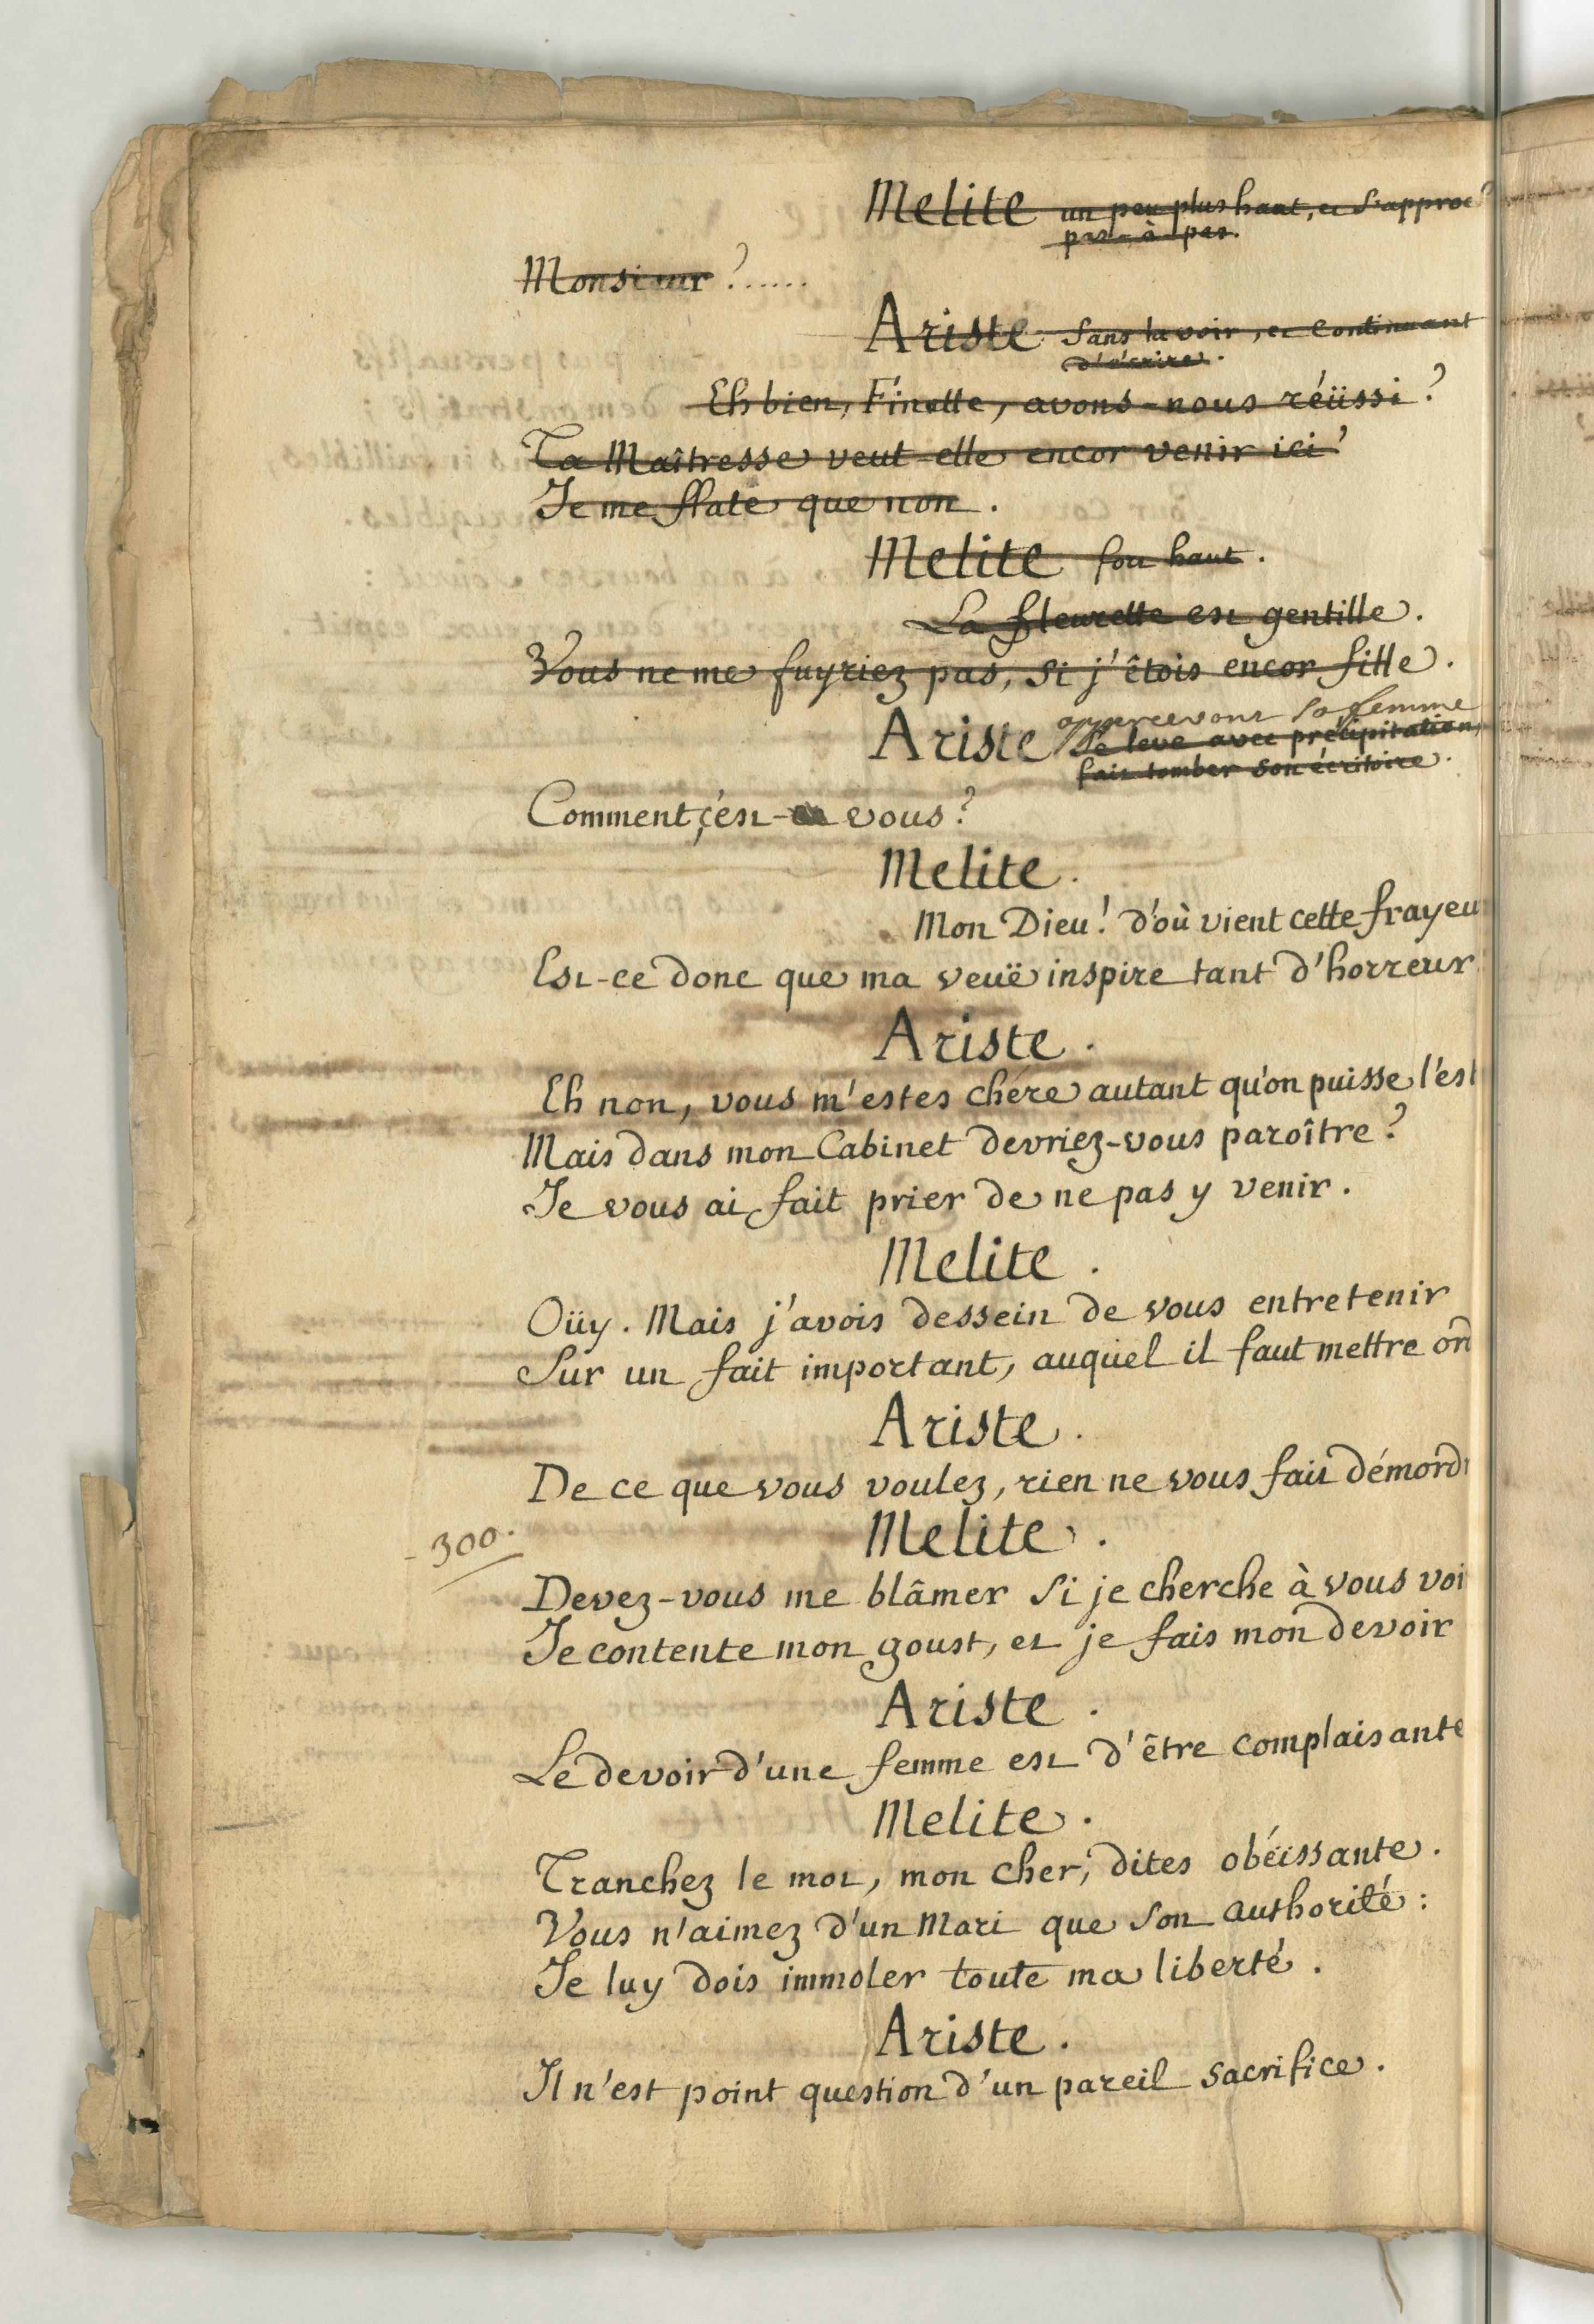 Melite un peu plus haut, et s'approc
pas-à-pas.
Monsieur ?......
Ariste sans la voir, et continuant
d'écrire.
Eh bien, Finette, avons-nous réüssi ?
Ta Maîtresse veut-elle encor venir ici ?
Je me flate que non.
Melite fou haut.
La fleurette est gentille.
Vous ne me fuyriez pas, si j'êtois encor fille.
appercevant sa femme
Ariste se leve avec précipitation,
fait tomber son écritoire.
Comment, c'est- vous ?
Melite.
Mon Dieu ! d'où vient cette frayeu
Est-ce donc que ma veuë inspire tant d'horreur
Ariste.
Eh non, vous m'estes chére autant qu'on puisse l'est
Mais dans mon Cabinet devriez-vous paroître ?
Je vous ai fait prier de ne pas y venir.
Melite.
Oüy. Mais j'avois dessein de vous entretenir
Sur un fait important, auquel il faut mettre ord
Ariste.
De ce que vous voulez, rien ne vous fait démord
- 300.
Melite.
Devez-vous me blâmer si je cherche à vous voi
Je contente mon goust, et je fais mon devoir
Ariste.
Le devoir d'une femme est d'être complaisante
Melite.
Tranchez le mot, mon cher, dites obéissante.
Vous n'aimez d'un Mari que son authorité :
Je luy dois immoler toute ma liberté.
Ariste.
Il n'est point question d'un pareil sacrifice.